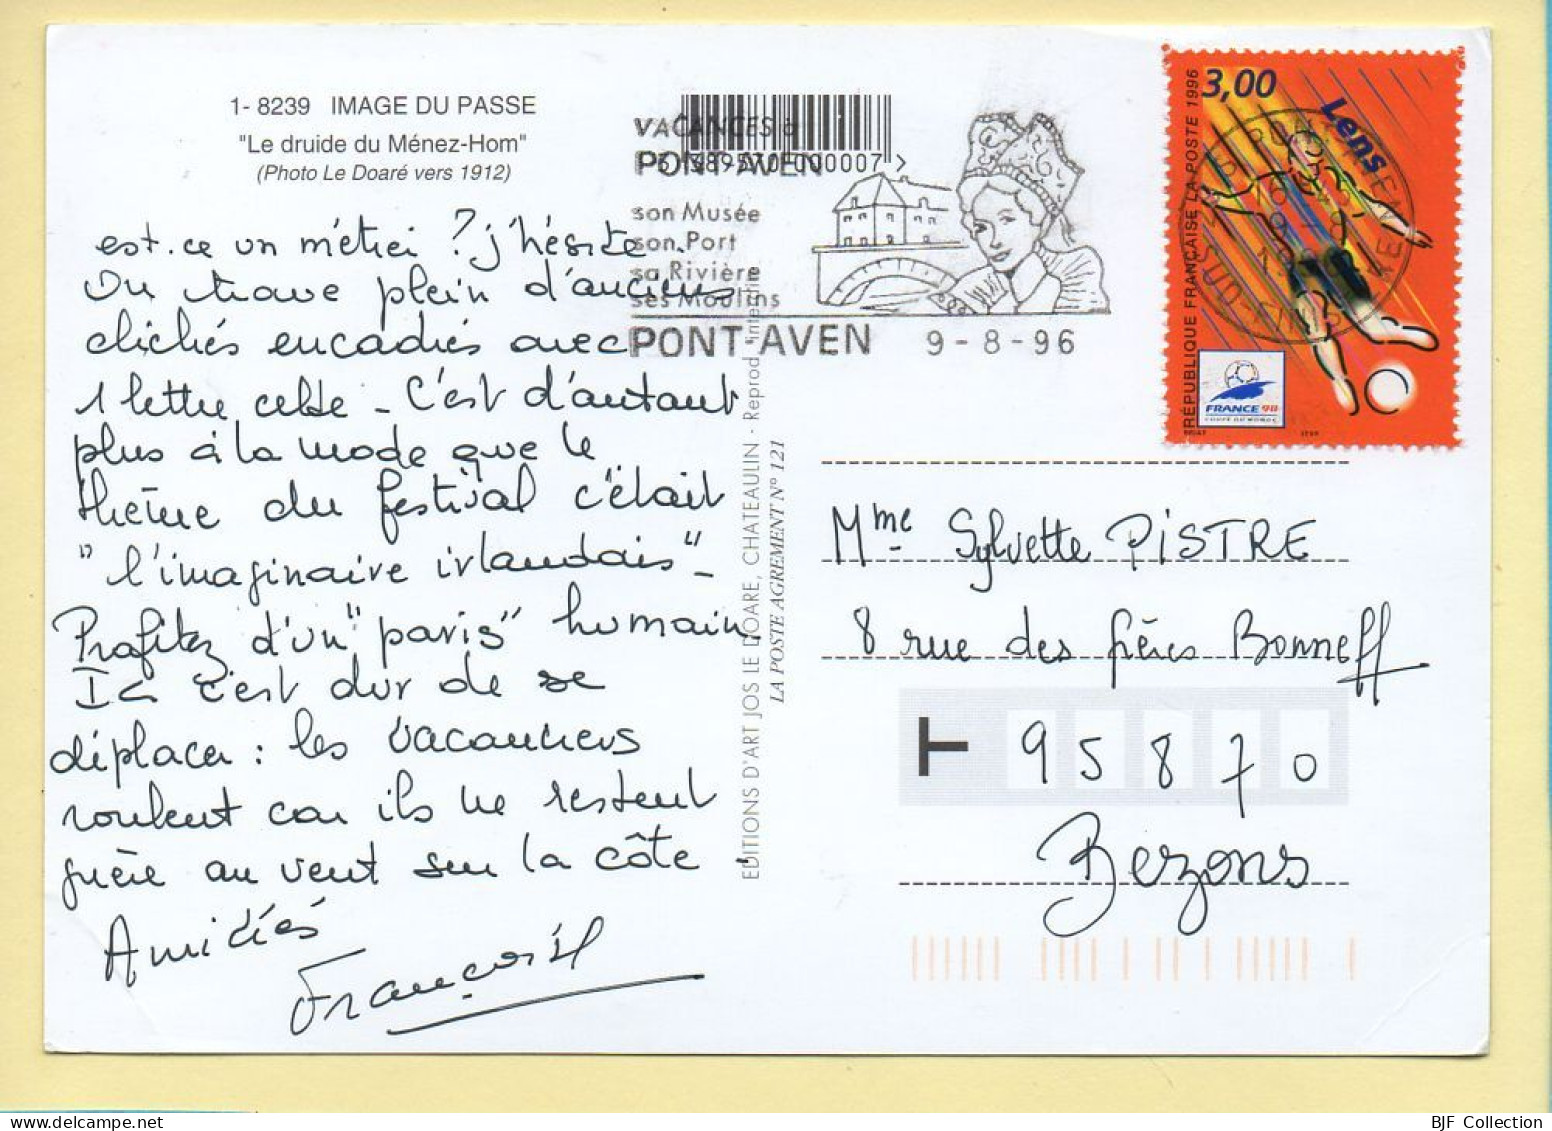 1- 8239 IMAGE DU PASSE
"Le druide du Ménez-Hom"
(Photo Le Doaré vers 1912)
est-ce un métier ? j'hésite...
On trouve plein d'anciens
clichés encadrés avec
1 lettre celte - C'est d'autant
plus à la mode que le
thème du festival c'était
"l'imaginaire irlandais" -
Profitez d'un "paris" humain.
Ici c'est dur de se
déplacer : les vacanciers
roulent car ils ne restent
guère au vent sur la côte.
Amitiés
EDITIONS D'ART JOS LE DOARE, CHATEAULIN - Reprod. interdite
LA POSTE AGREMENT N° 121
VACANCES à
PONT-AVEN
son Musée
son Port
sa Rivière
ses Moulins
PONT AVEN 9-8-96
3,00
Lens
RÉPUBLIQUE FRANÇAISE LA POSTE 1996
FRANCE 98
COUPE DU MONDE
Mme Sylvette PISTRE
8 rue des frères Bonneff
T 95870
Bezons
BJF Collection